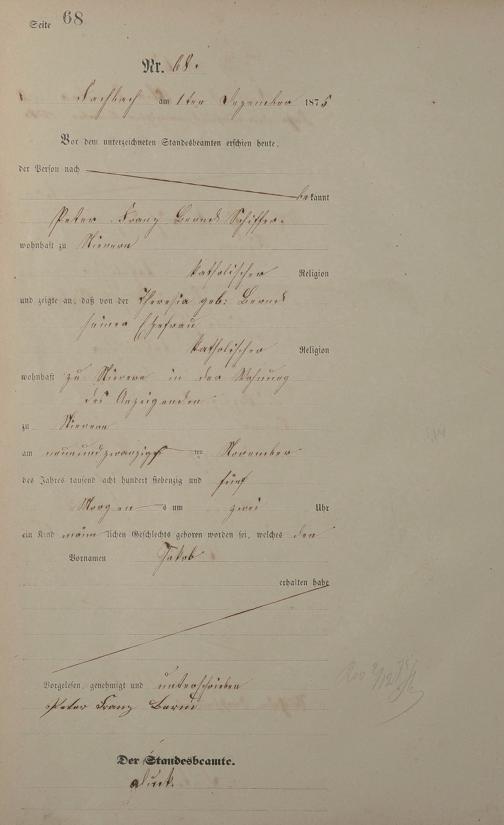 Seite 68
Nr. 68.
Fachbach am 1ten Dezember 1875
Vor dem unterzeichneten Standesbeamten erschien heute,
der Person nach
bekannt
Peter Franz Berndt Schiffer
wohnhaft zu Nievern
katholischer Religion
und zeigte an, daß von der Theresia geb: Berndt
seiner Ehefrau
katholischer Religion
wohnhaft zu Nievern in der Wohnung
des Anzeigenden
zu Nievern
am neunundzwanzigst ten November
des Jahres tausend acht hundert siebenzig und fünf
Morgens um zwei Uhr
ein Kind männlichen Geschlechts geboren worden sei, welches den
Vornamen Jakob
erhalten habe
Vorgelesen, genehmigt und unterschrieben
Peter Franz Bernd
Der Standesbeamte.